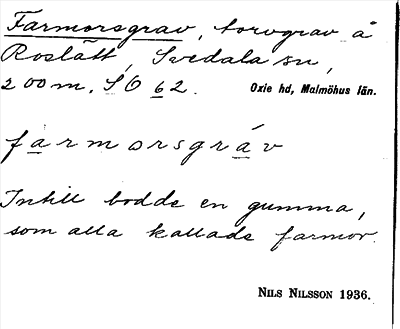 Farmorsgrav, torvgrav å
Roslätt, Svedala sn,
200 m. SO 62. Oxie hd, Malmöhus län.
farmorsgráv
Intill bodde en gumma,
som alla kallade farmor.
NILS NILSSON 1936.